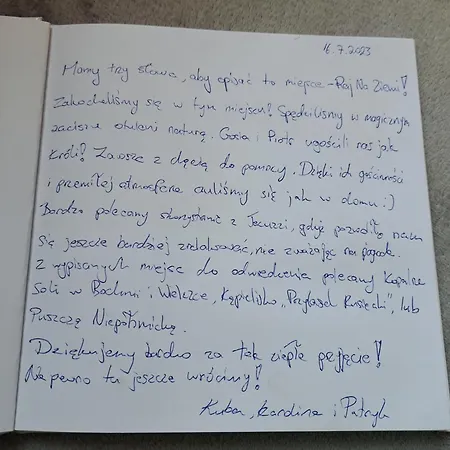 16.7.2023
Mamy trzy słowa, aby opisać to miejsce - Raj Na Ziemi!
Zakochaliśmy się w tym miejscu! Spędziliśmy w magicznym
zaciszu otuleni naturą. Gosia i Piotr ugościli nas jak
Króli! Zawsze z chęcią do pomocy. Dzięki ich gościnności
i przemiłej atmosferze czuliśmy się jak w domu :)
Bardzo polecamy skorzystanie z Jacuzzi, gdyż pozwoliło nam
się jeszcze bardziej zrelaksować, nie zważając na pogodę.
Z wypisanych miejsc do odwiedzenia polecamy Kopalnie
Soli w Bochni i Wieliczce, Kąpielisko "Przylasek Rusiecki", lub
Puszczę Niepołomicką.
Dziękujemy bardzo za tak ciepłe przyjęcie!
Na pewno tu jeszcze wrócimy!
Kuba, Karolina i Patryk